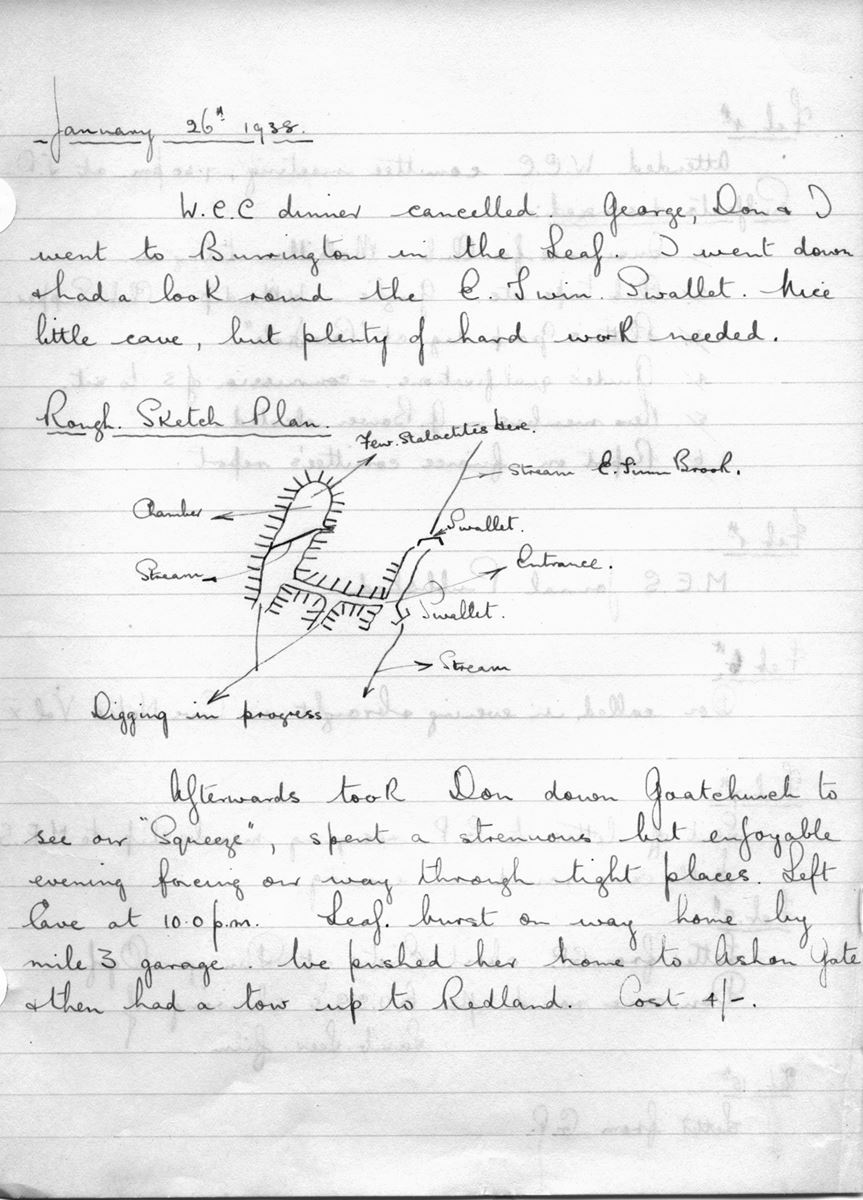 January 26th 1938.
W.C.C dinner cancelled George, Don & I
went to Burrington in the Leaf I went down
& had a look round the E. Twin. Swallet. Nice
little cave, but plenty of hard work needed.
Rough. Sketch Plan.
Few. Stalactites Here.
Stream E. Twin Brook.
Chamber
Swallet.
Entrance.
Stream
Swallet.
Stream
Digging in progress
Afterwards took Don down Goatchurch to
see our "Squeeze", spent a strenuous but enjoyable
evening forcing our way through tight places. Left
Cave at 10.0 p.m. Leaf. burst on way home by
mile 3 garage. We pushed her home to Ashon Gate
& then had a tow up to Redland. Cost 4/-.